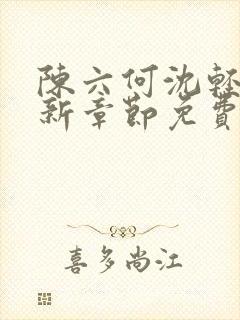 陳六何沈輕
新章節免費
喜多尚江